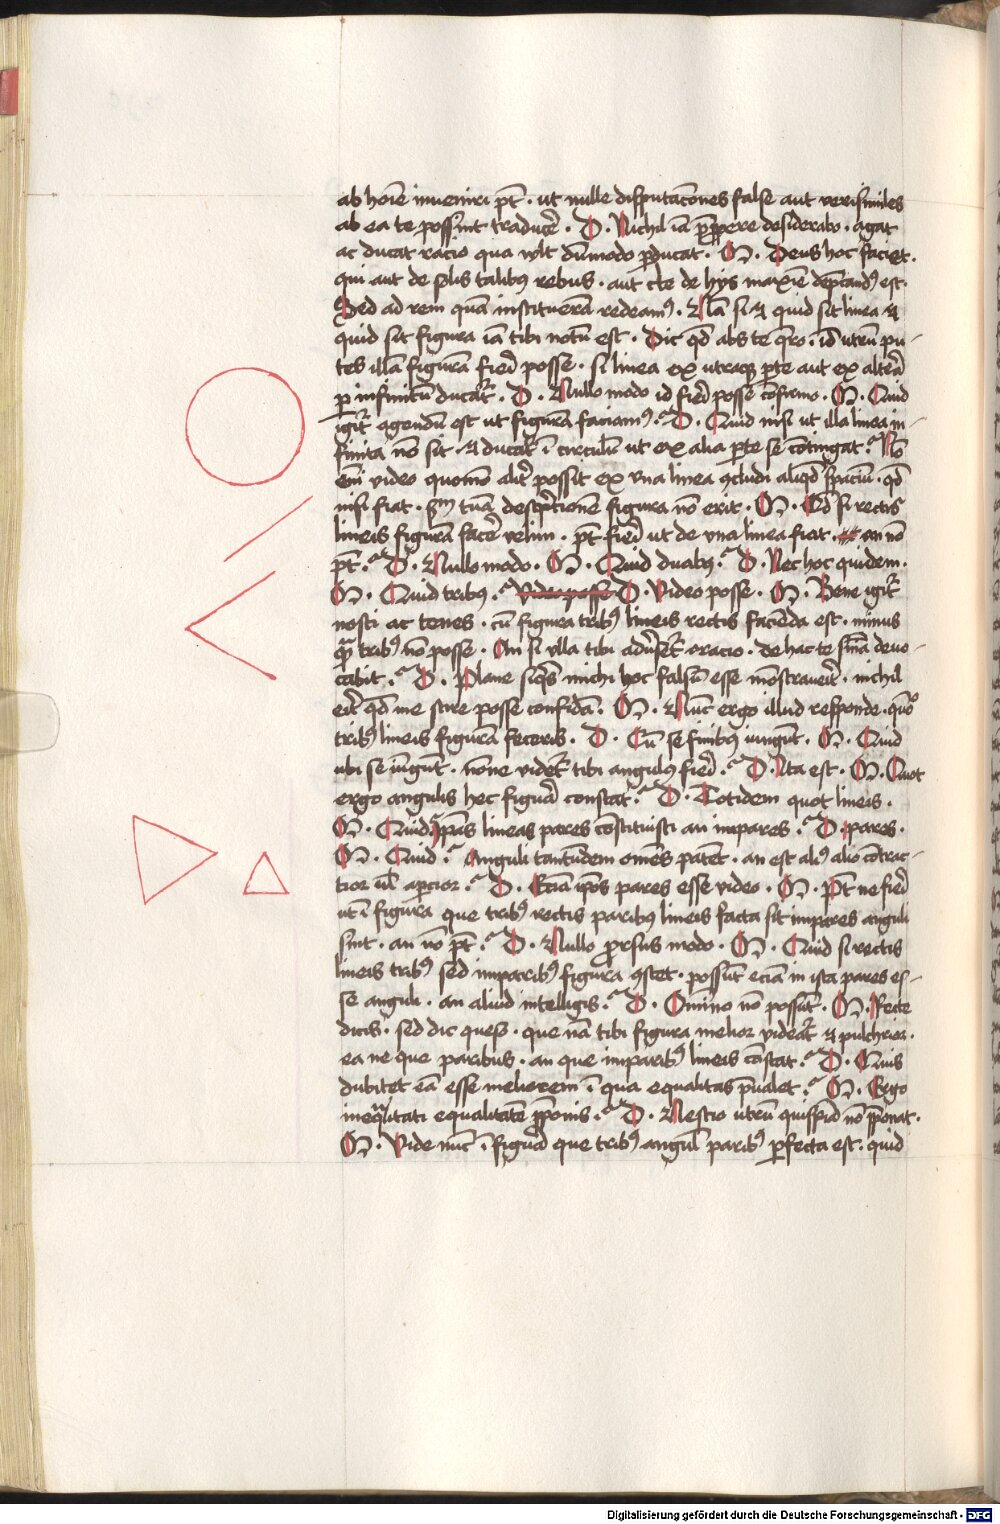 ab hoīe inueniri pt̄ · ut mille disputac̄ones false aut verisimiles
ab ea te poss̄int traduc̄e · D · Nichil iā p̄ꝑere desiderabo · agat
ac ducat racio qua wlt dūmodo ꝑducat · M · Deus hoc faciet ·
qui aut de solis talibꝰ rebus · aut c̄te de hijs maxīe dep̄candꝰ est ·
Sed ad rem quā instituerā redeamꝰ · Nā si ꝛ quid sit linea ꝛ
quid sit figura iā tibi notū est · Dic qd̄ abs te q̄ro · id utrū pu-
tes illā figurā fier̄ posse · si linea ex utraqꝫ ꝑte aut ex alter̄a
ꝑ infinitū ducat̄ · D · Nullo modo id fier̄ posse cōfirmo · M · Quid
igit̄ agendū est ut figurā faciamꝰ · D · Quid nisi ut illa linea in-
finita nō sit · ꝛ ducat̄ ī circulū ut ex alia ꝑte se cōtingat · Nō
em̄ video quomō alit̄ possit ex vna linea ꝯcludi aliqd̄ spaciū · qd̄
nisi fiat · scd̄m tuā desc̄pcionē figura nō erit · M · Qd̄ si rectis
lineis figurā fac̄e velim · pt̄ fier̄ ut de vna linea fiat · an nō
pt̄ · D · Nullo modo · M · Quid duabꝰ · D · Nec hoc quidem ·
M · Quid tribꝰ · Video posse D · Video posse · M · Bene igit̄
nosti ac tenes · cū figura tribꝰ lineis rectis faciēda est · minus
qua tribꝰ nō posse · An si vlla tibi adūset̄ oracio · de hac te sn̄ia deuo-
cabit · D · Plane siqs̄ michi hoc falsū esse mōstraueit̄ · nichil
erit̄ qd̄ me scire posse confidā · M · Nūc ergo illud responde · quō
tribꝰ lineis figurā feceris · D · Cū se finibꝰ iungūt · M · Quid
ubi se iūgūt · nōne videt̄ tibi angulus fier̄ · D · Ita est · M · Quot
ergo angulis hec figura constat · D · Totidem quot lineis ·
M · Quid ip̄as lineas pares cōstituisti an impares · D · pares ·
M · Quid · Anguli tantūdem om̄es patēt · an est aliꝰ alio cōtrac-
tior ul̄ apcior · D · Eciā ip̄os pares esse video · M · pt̄ ne fier̄
ut ī figura que tribꝰ rectis paribus lineis facta sit impares anguli
sint · an nō pt̄ · D · Nullo prorsus modo · M · Quid si rectis
lineis tribꝰ sed imparibꝰ figura ꝯstet · possūt eciā in ista pares es-
se anguli · an aliud intelligis · D · Omīno nō possūt · M · Recte
dicis · sed dic queso · que nā tibi figura melior videat̄ ꝛ pulchrior ·
ea ne que paribus · an que imparibꝰ lineis cōstat · D · Quis
dubitet eā esse meliorem ī qua equalitas p̄ualet · M · Ergo
inequalitati equalitatē p̄ponis · D · Nescio utrū quisp̄iā nō p̄ponat ·
M · Vide nūc ī figura que tribꝰ angul̄ paribꝰ ꝑfecta est · quid
Digitalisierung gefördert durch die Deutsche Forschungsgemeinschaft - DFG